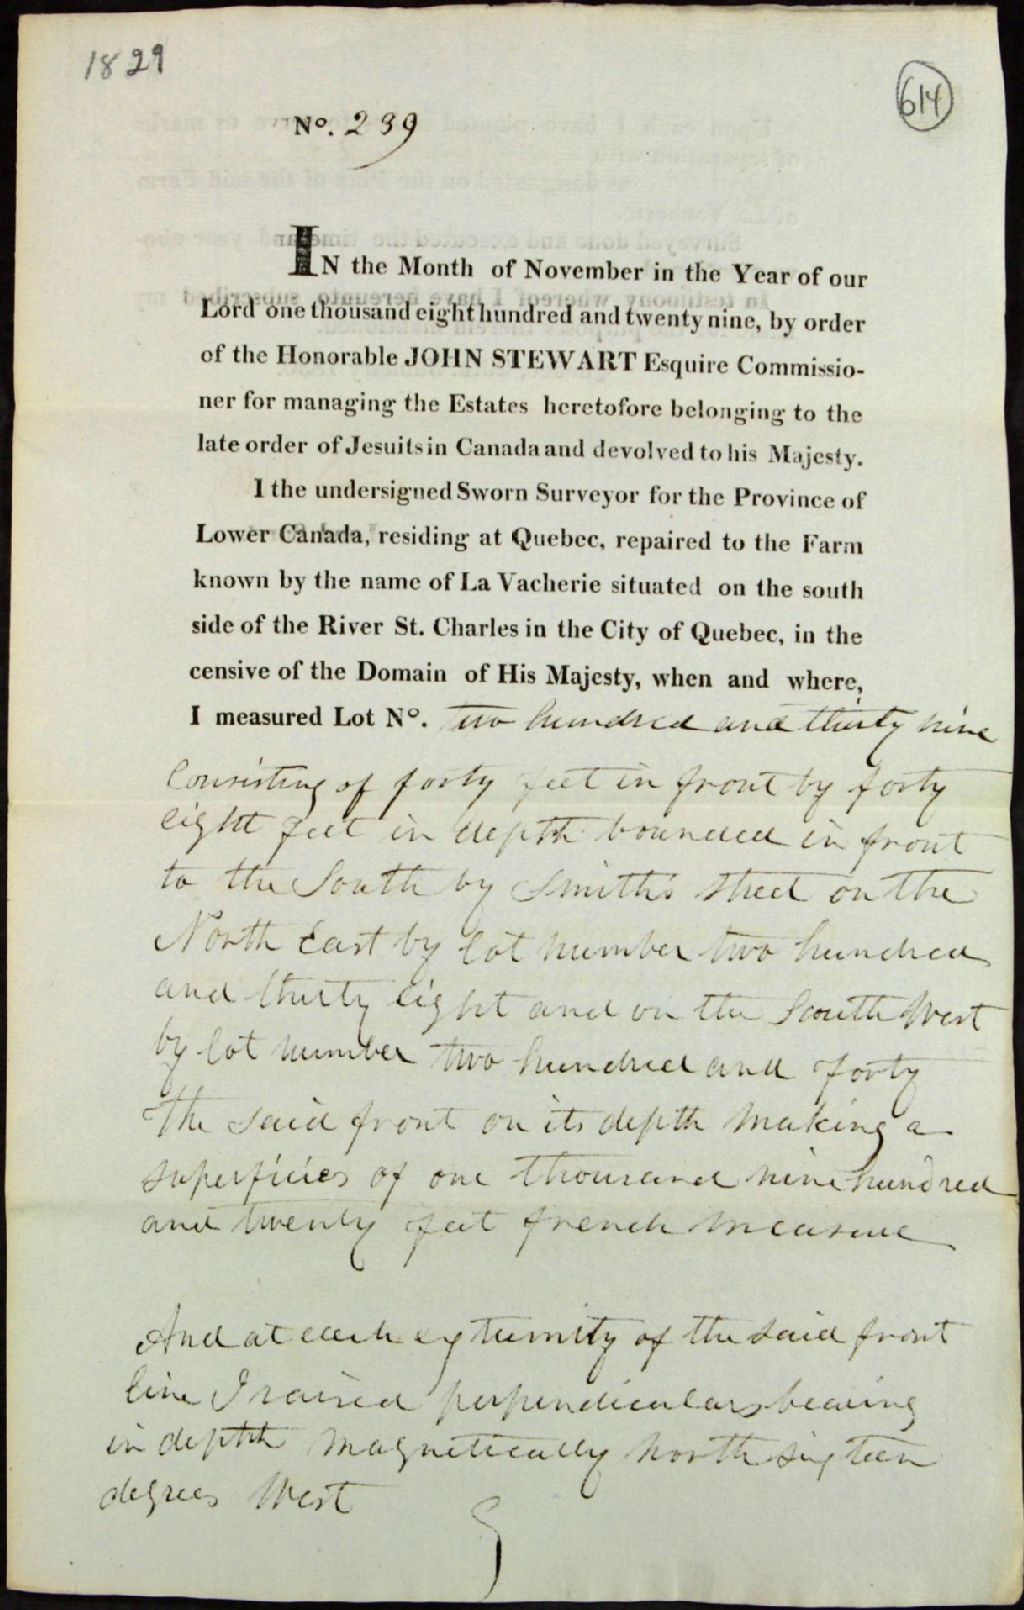 1829
614
No. 239
IN the Month of November in the Year of our
Lord one thousand eight hundred and twenty nine, by order
of the Honorable JOHN STEWART Esquire Commissio-
ner for managing the Estates heretofore belonging to the
late order of Jesuits in Canada and devolved to his Majesty.
I the undersigned Sworn Surveyor for the Province of
Lower Canada, residing at Quebec, repaired to the Farm
known by the name of La Vacherie situated on the south
side of the River St. Charles in the City of Quebec, in the
censive of the Domain of His Majesty, when and where,
I measured Lot No. two hundred and thirty nine
Consisting of forty feet in front by forty
eight feet in depth bounded in front
to the South by Smith's Street on the
North East by lot number two hundred
and thirty eight and on the South West
by lot number two hundred and forty
The said front on its depth making a
superficies of one thousand nine hundred
and twenty feet french measure
And at each extremity of the said front
line I raised perpendiculars bearing
in depth magnetically North sixteen
degrees West